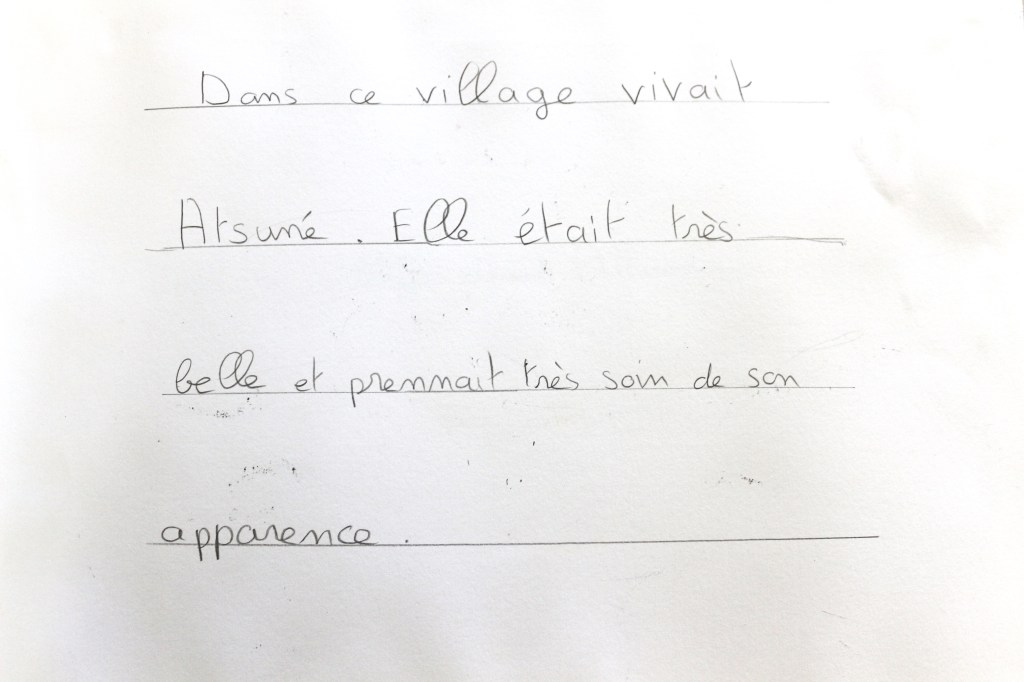 Dans ce village vivait
Atsuné. Elle était très
belle et prennait très soin de son
apparence.